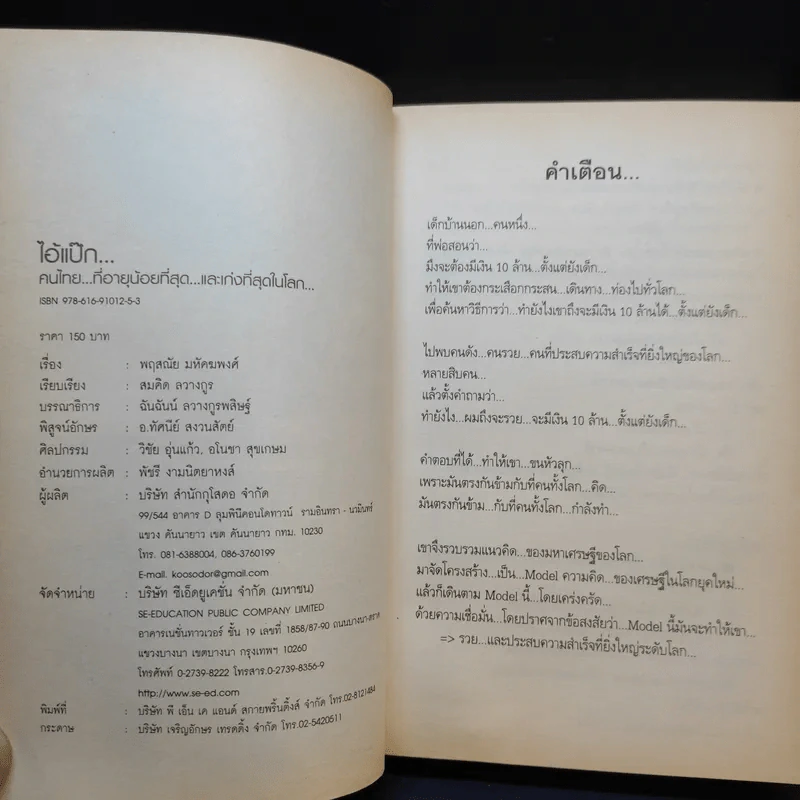 ไอ้แป๊ก...
คนไทย...ที่อายุน้อยที่สุด...และเก่งที่สุดในโลก...
ISBN 978-616-91012-5-3
ราคา 150 บาท
เรื่อง : พฤสณัย มหัคฆพงศ์
เรียบเรียง : สมคิด ลวางกูร
บรรณาธิการ : ฉันฉันน์ ลวางกูรพสิษฐ์
พิสูจน์อักษร : อ.ทัศนีย์ สงวนสัตย์
ศิลปกรรม : วิชัย อุ่นแก้ว, อโนชา สุขเกษม
อำนวยการผลิต : พัชรี งามนิตยาหงส์
ผู้ผลิต : บริษัท สำนักกุโสดอ จำกัด
99/544 อาคาร D ลุมพินีคอนโดทาวน์ รามอินทรา - นวมินทร์
แขวง คันนายาว เขต คันนายาว กทม. 10230
โทร. 081-6388004, 086-3760199
E-mail. koosodor@gmail.com
จัดจำหน่าย : บริษัท ซีเอ็ดยูเคชั่น จำกัด (มหาชน)
SE-EDUCATION PUBLIC COMPANY LIMITED
อาคารเนชั่นทาวเวอร์ ชั้น 19 เลขที่ 1858/87-90 ถนนบางนา-ตราด
แขวงบางนา เขตบางนา กรุงเทพฯ 10260
โทรศัพท์ 0-2739-8222 โทรสาร.0-2739-8356-9
http://www.se-ed.com
พิมพ์ที่ : บริษัท พี เอ็น เค แอนด์ สกายพริ้นติ้งส์ จำกัด โทร.02-8121484
กระดาษ : บริษัท เจริญอักษร เทรดดิ้ง จำกัด โทร.02-5420511
คำเตือน...
เด็กบ้านนอก...คนหนึ่ง...
ที่พ่อสอนว่า...
มึงจะต้องมีเงิน 10 ล้าน...ตั้งแต่ยังเด็ก...
ทำให้เขาต้องกระเสือกกระสน...เดินทาง...ท่องไปทั่วโลก...
เพื่อค้นหาวิธีการว่า...ทำยังไงเขาถึงจะมีเงิน 10 ล้านได้...ตั้งแต่ยังเด็ก...
ไปพบคนดัง...คนรวย...คนที่ประสบความสำเร็จที่ยิ่งใหญ่ของโลก...
หลายสิบคน...
แล้วตั้งคำถามว่า...
ทำยังไง...ผมถึงจะรวย...จะมีเงิน 10 ล้าน...ตั้งแต่ยังเด็ก...
คำตอบที่ได้...ทำให้เขา...ขนหัวลุก...
เพราะมันตรงกันข้ามกับที่คนทั้งโลก...คิด...
มันตรงกันข้าม...กับที่คนทั้งโลก...กำลังทำ...
เขาจึงรวบรวมแนวคิด...ของมหาเศรษฐีของโลก...
มาจัดโครงสร้าง...เป็น...Model ความคิด...ของเศรษฐีในโลกยุคใหม่...
แล้วก็เดินตาม Model นี้...โดยเคร่งครัด...
ด้วยความเชื่อมั่น...โดยปราศจากข้อสงสัยว่า...Model นี้มันจะทำให้เขา...
=> รวย...และประสบความสำเร็จที่ยิ่งใหญ่ระดับโลก...